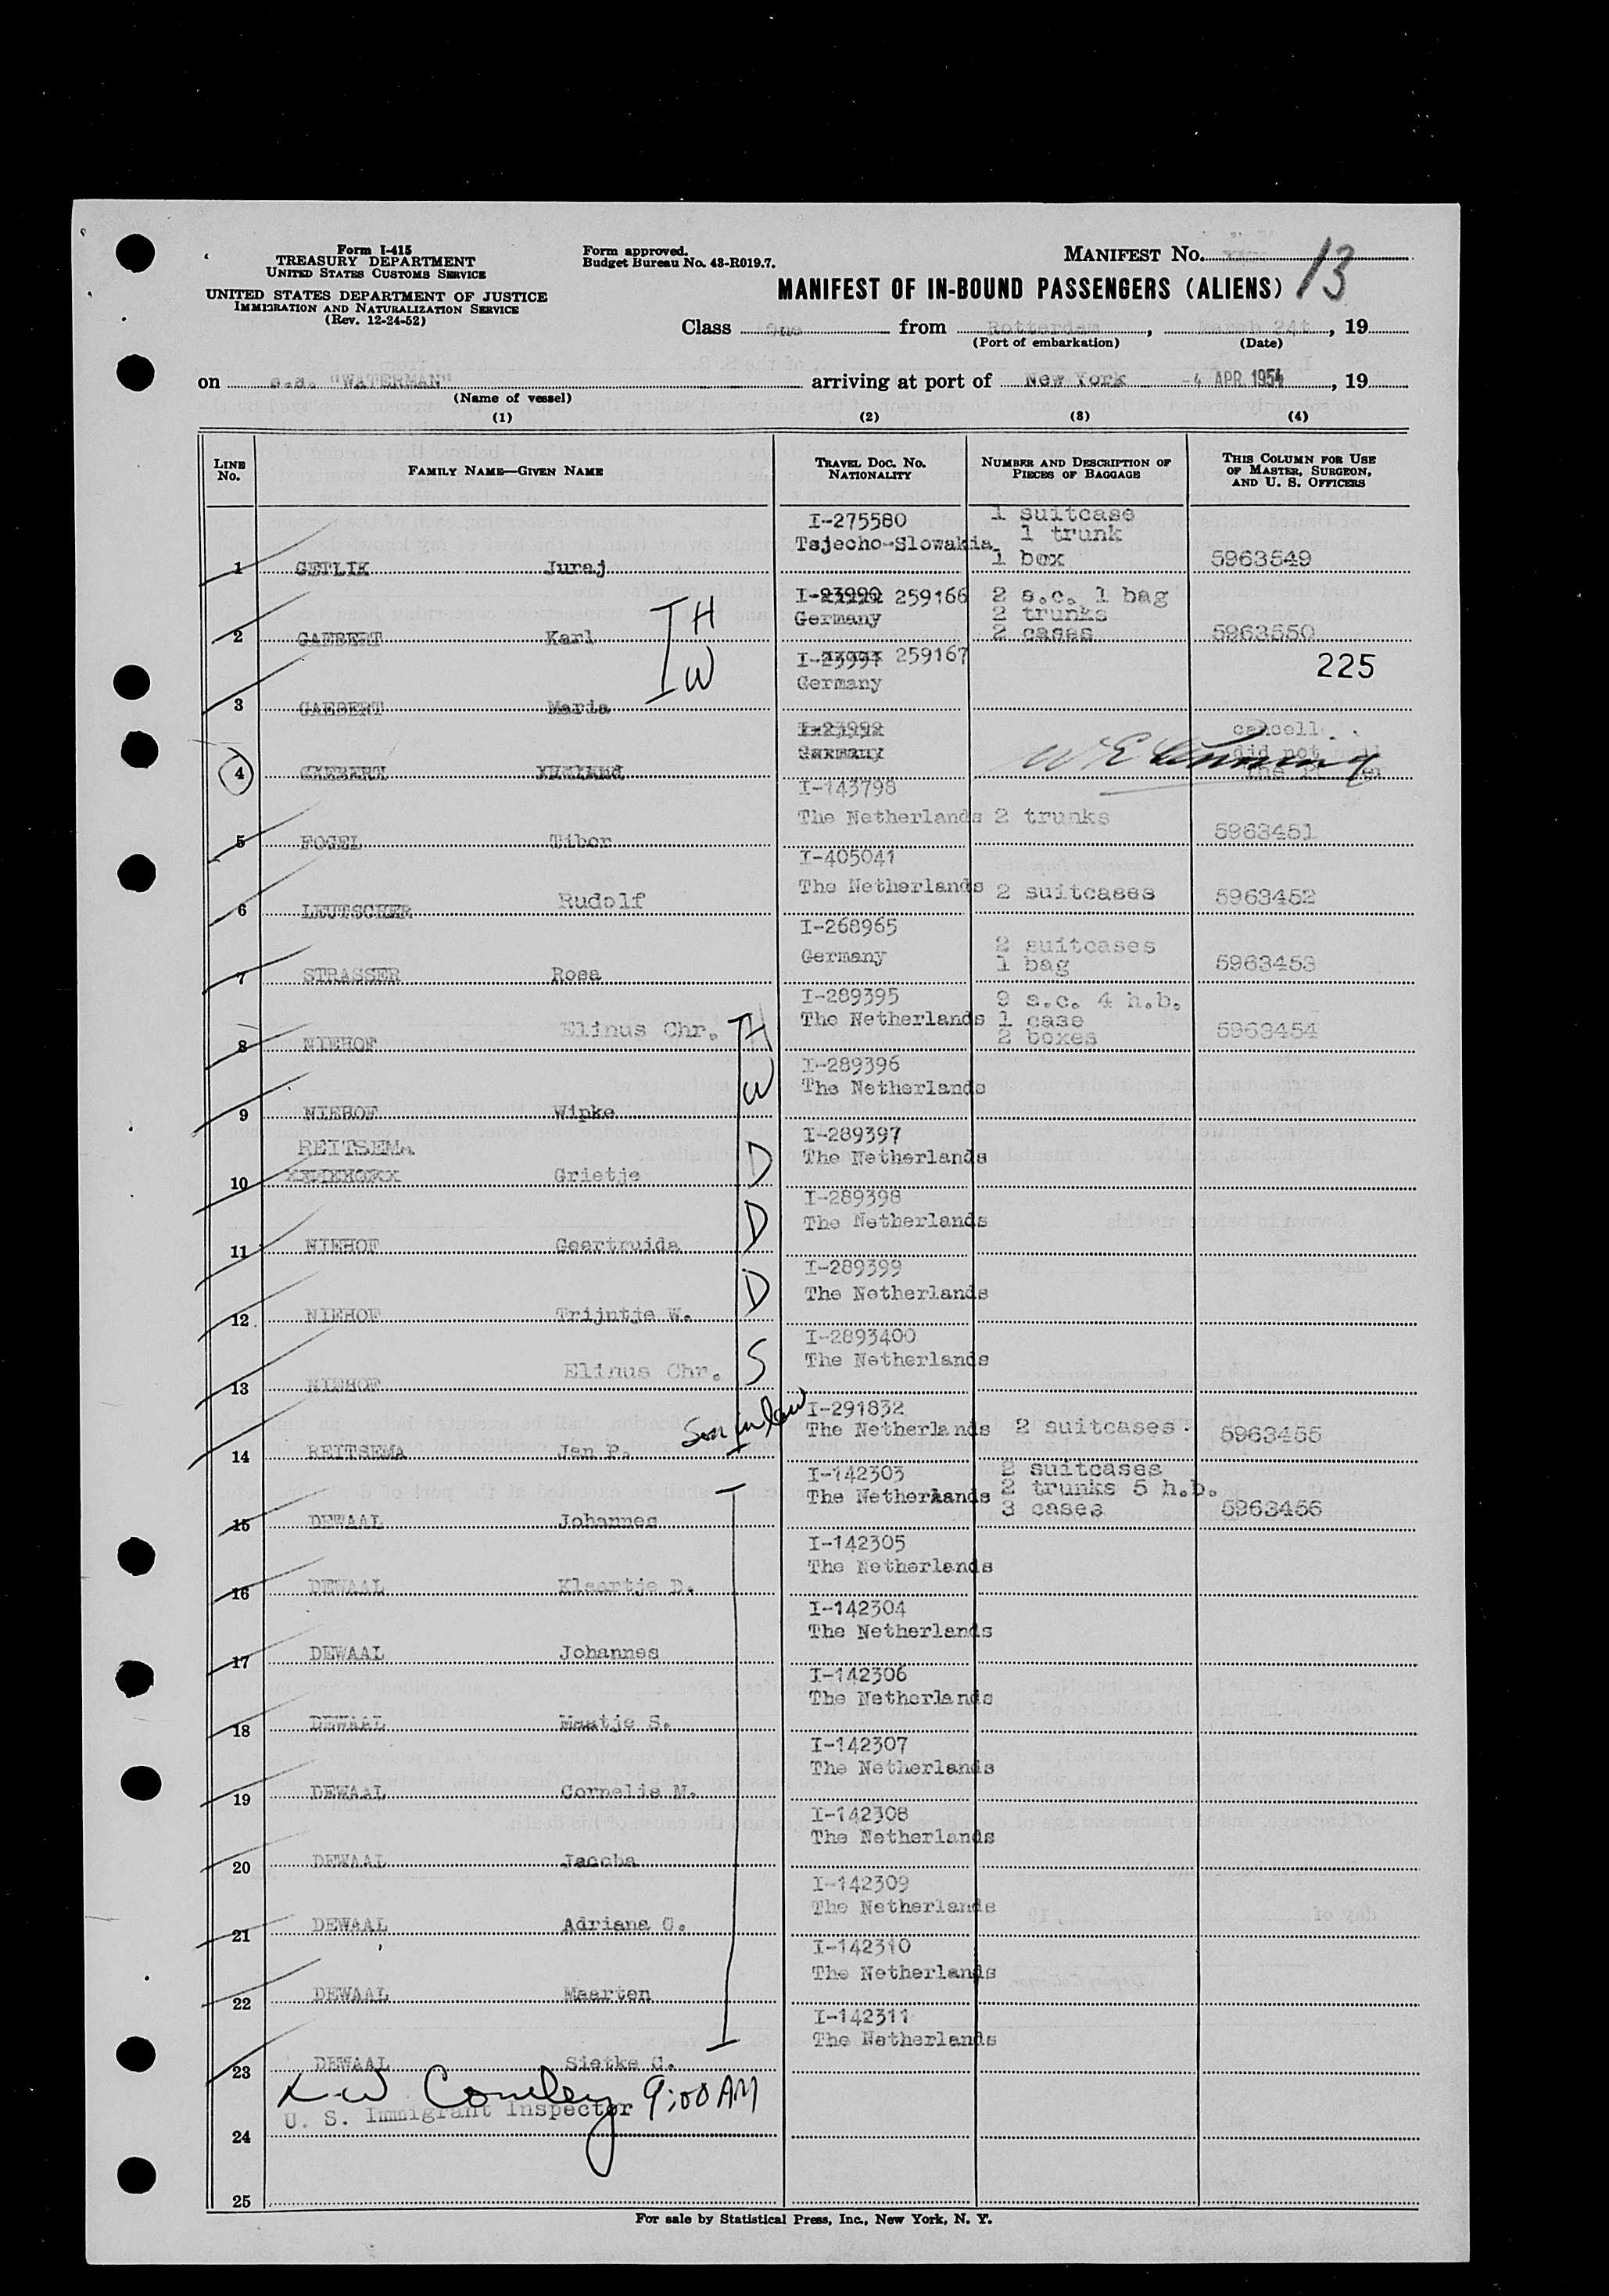 Form I-415
TREASURY DEPARTMENT
UNITED STATES CUSTOMS SERVICE
UNITED STATES DEPARTMENT OF JUSTICE
IMMIGRATION AND NATURALIZATION SERVICE
(Rev. 12-24-52)
Form approved.
Budget Bureau No. 43-R019.7.
MANIFEST No.
13
MANIFEST OF IN-BOUND PASSENGERS (ALIENS)
Class One from Rotterdam, March 24t, 19
(Port of embarkation) (Date)
on s.s. "WATERMAN" arriving at port of New York -4 APR. 1954, 19
(Name of vessel)
(1) (2) (3) (4)
LINE No. FAMILY NAME—GIVEN NAME TRAVEL DOC. No. NATIONALITY NUMBER AND DESCRIPTION OF PIECES OF BAGGAGE THIS COLUMN FOR USE OF MASTER, SURGEON, AND U. S. OFFICERS
I-275580 1 suitcase
Tsjecho-Slowakia 1 trunk
1 GETLIK Juraj 1 box 5963549
I-23990 259166 2 s.c. 1 bag
H Germany 2 trunks
2 GAEBERT Karl 2 cases 5963550
W I-23991 259167 225
Germany
3 GAEBERT Maria
I-23992 cancell
Germany did not
4 GAEBERT
I-143798
The Netherlands 2 trunks
5 FOGEL Tibor 5963451
I-405041
The Netherlands 2 suitcases 5963452
6 LEUTSCHER Rudolf
I-268965 2 suitcases
Germany 1 bag 5963453
7 STRASSER Rosa
I-289395 9 s.c. 4 h.b.
Elinus Chr. H The Netherlands 1 case
8 NIEHOF 2 boxes 5963454
I-289396
W The Netherlands
9 NIEHOF Wipke
REITSEMA I-289397
D The Netherlands
10 XXNIEHOFXX Grietje
I-289398
D The Netherlands
11 NIEHOF Geertruida
I-289399
D The Netherlands
12 NIEHOF Trijntje W.
I-2893400
Elinus Chr. S The Netherlands
13 NIEHOF
Son in law I-291832
The Netherlands 2 suitcases. 5963455
14 REITSEMA Jan P.
I-142303 2 suitcases
The Netherlands 2 trunks 5 h.b.
15 DEWAAL Johannes 3 cases 5963456
I-142305
The Netherlands
16 DEWAAL Klaartje D.
I-142304
The Netherlands
17 DEWAAL Johannes
I-142306
The Netherlands
18 DEWAAL Maatje S.
I-142307
The Netherlands
19 DEWAAL Cornelis M.
I-142308
The Netherlands
20 DEWAAL Jacoba
I-142309
The Netherlands
21 DEWAAL Adriana C.
I-142310
The Netherlands
22 DEWAAL Maarten
I-142311
The Netherlands
23 DEWAAL Sietke C.
9:00 AM
U. S. Immigrant Inspector
24
25
For sale by Statistical Press, Inc., New York, N. Y.